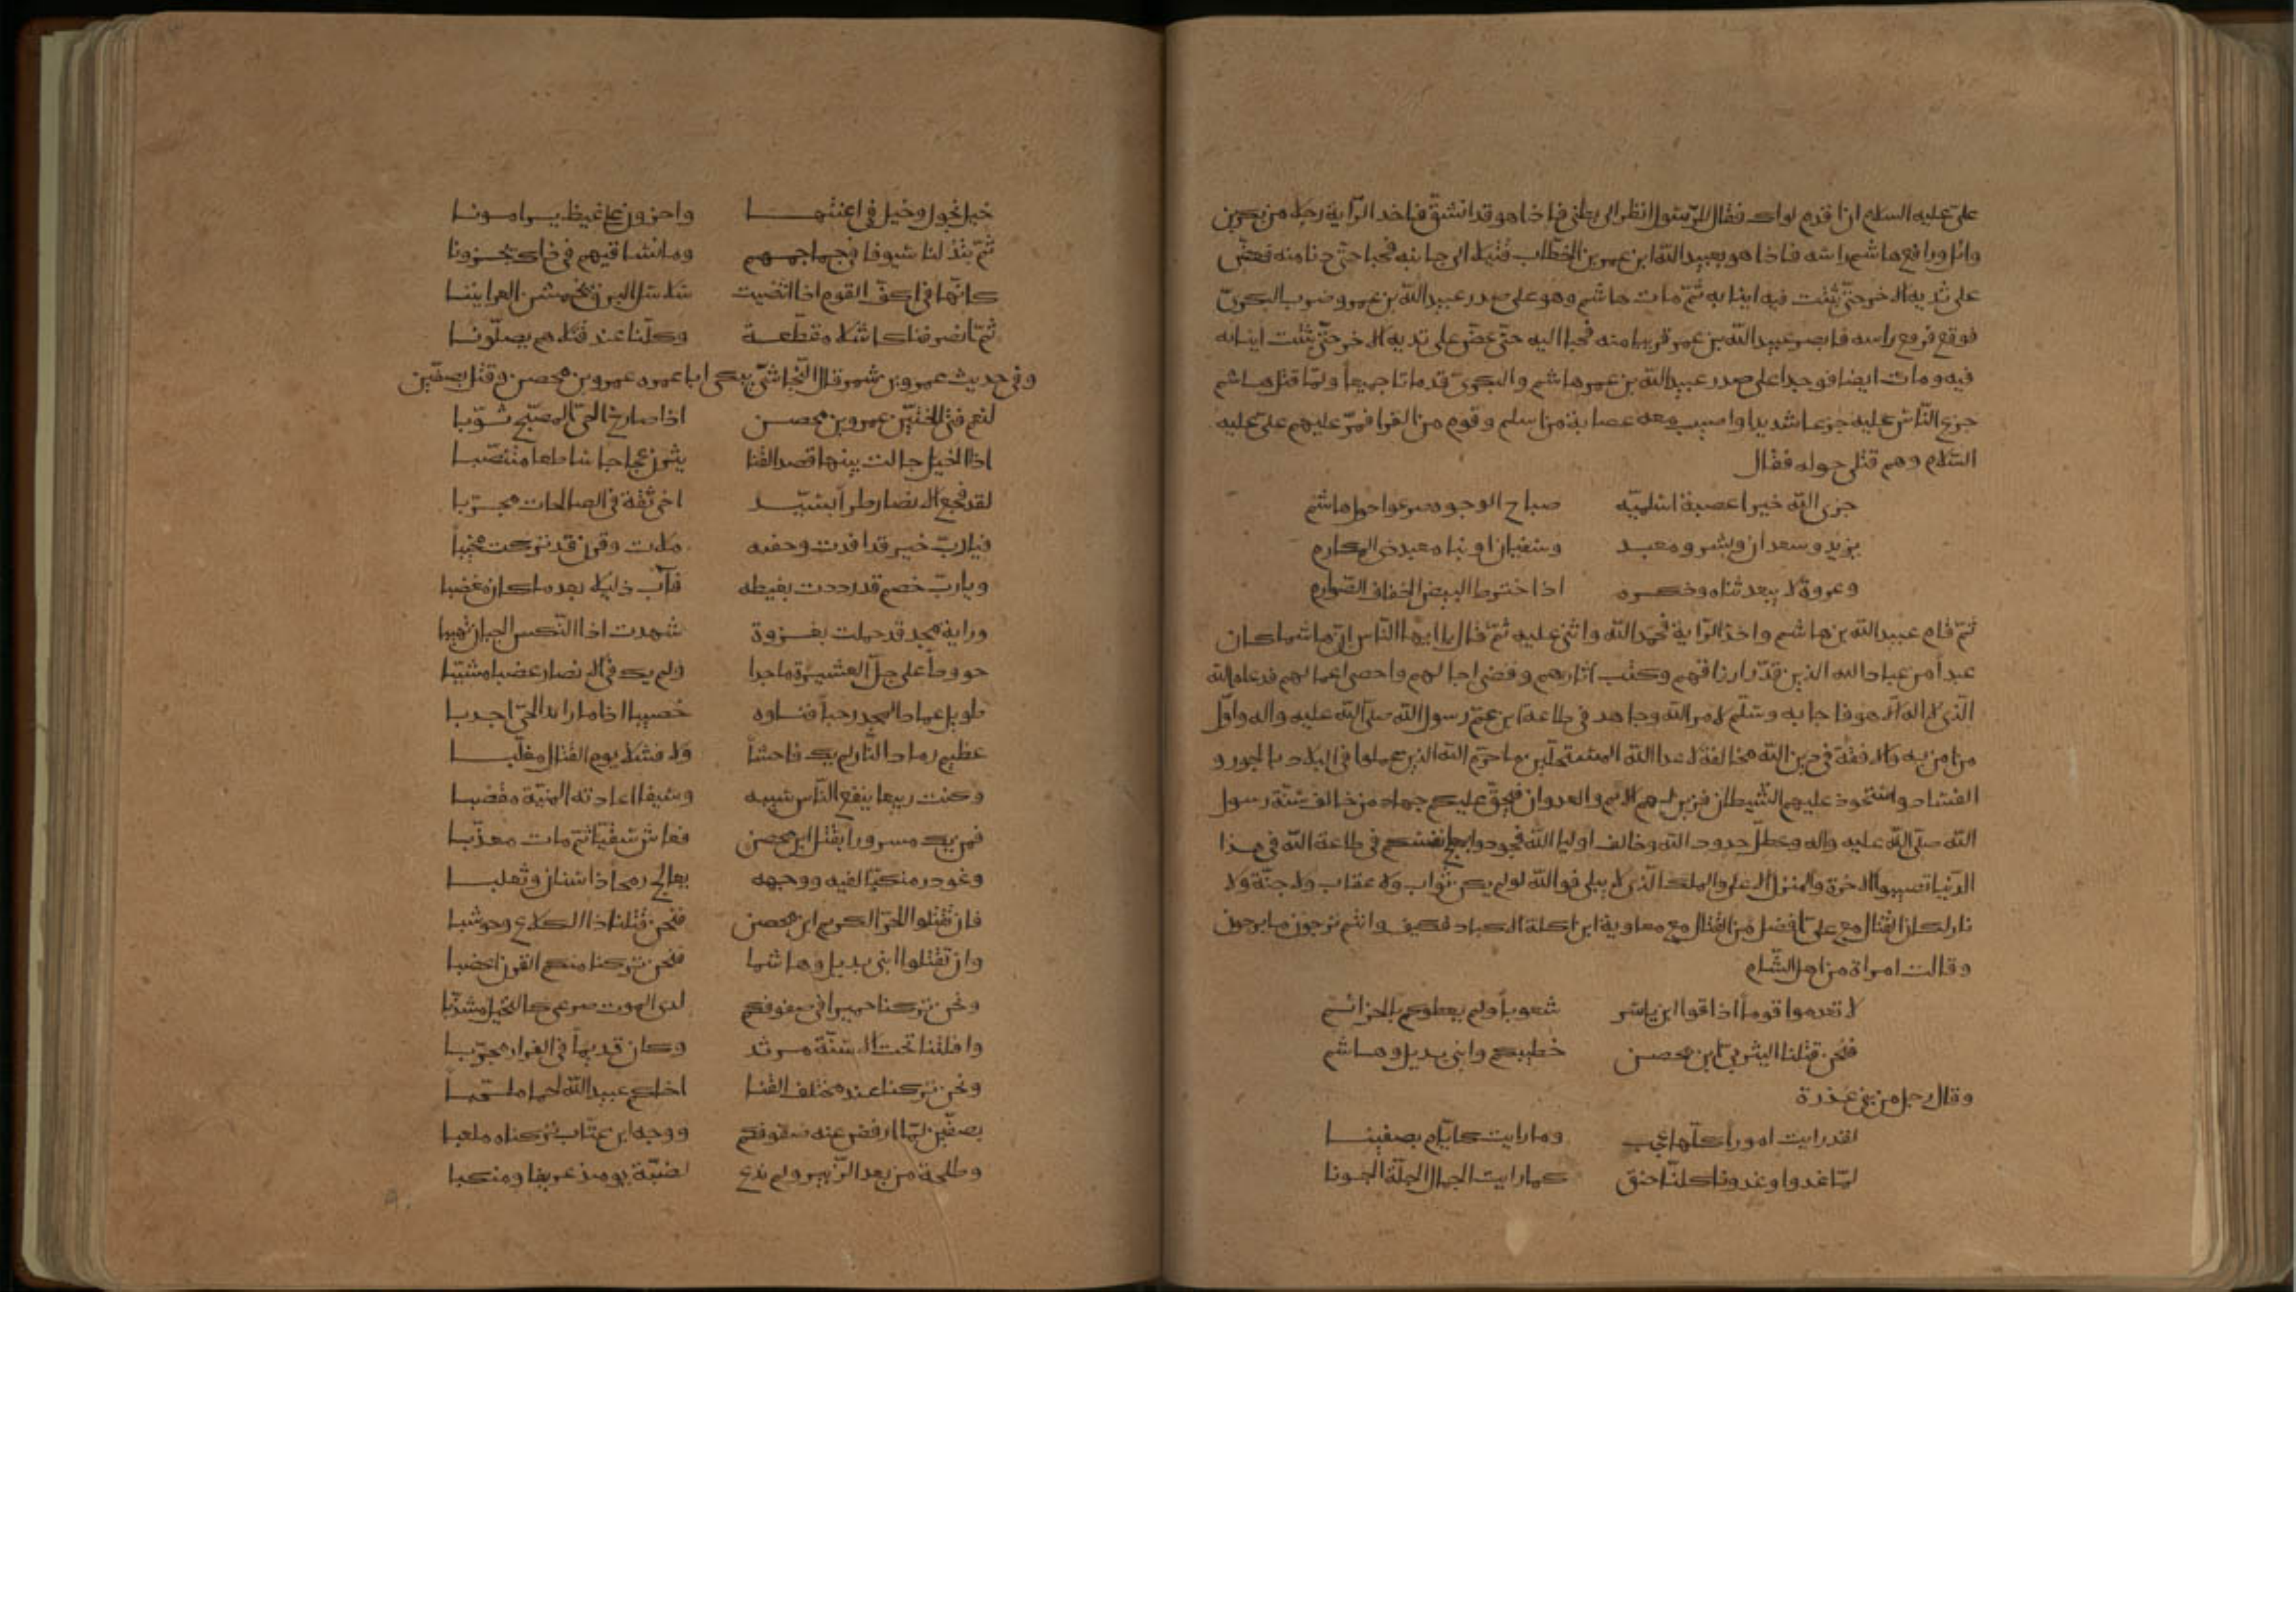 علىّ عليه السلام ان اقدم لواك فقال للرّسول انظر الى بطنى فاذا هو قد انشقّ فاخذ الرّاية رجل من بكر بن
وائل ورافع هاشم راسه فاذا هو بعبيد اللّه ابن عمر بن الخطّاب قتيلا الى جانبه فحبا حتّى دنا منه فعضّ
على ثديه الاخر حتّى ثبتت فيه انيابه ثمّ مات هاشم وهو على صدر عبيد اللّه بن عمر وضرب البكرىّ
فوقع فرفع راسه فابصر عبيد اللّه بن عمر قريبا منه فحبا اليه حتّى عضّ على ثديه الاخر حتّى ثبتت انيابه
فيه ومات ايضا فوجدا على صدر عبيد اللّه بن عمر هاشم والبكرىّ قد ماتا جميعاً ولمّا قتل هاشم
جزع النّاس عليه جزعا شديدا واصيب معه عصابة من اسلم وقوم من القرا فمرّ عليهم علىّ عليه
السّلام وهم قتلى حوله فقال
جزى اللّه خيرا عصبة اسلميّه صباح الوجوه صرعوا حول هاشم
يزيد وسعدان وبشر ومعبد وسفيان وابنا معبد ذى المكارم
وعروة لا يبعد ثناه وذكره اذا اخترط البيض الخفاف الصّوارم
ثمّ قام عبيد اللّه بن هاشم واخذ الرّاية فحمد اللّه واثنى عليه ثمّ قال يا ايها النّاس انّ هاشما كان
عبداً من عباد الله الذين قدّر ارزاقهم وكتب اثارهم وقضى اجالهم واحصى اعمالهم فدعاه الله
الّذى لا اله الّا هو فاجابه وسلّم لامر اللّه وجاهد فى طاعة ابن عمّ رسول اللّه صلّى اللّه عليه واله واوّل
من امن به وافقه فى دين اللّه مخالفة لاعدا اللّه المستحلّين ما حرّم اللّه الذين عملوا فى البلاد بالجور و
الفساد واستحوذ عليهم الشّيطان فزين لهم الاثم والعدوان فحقّ عليكم جهاد من خالف سنّة رسول
اللّه صلّى اللّه عليه واله وعطّل حدود اللّه وخالف اوليا اللّه فجودوا انفسكم فى طاعة اللّه فى هذا
الدّنيا تصيبوا الاخرة والمنزل الاعلى والملك الّذى لا يبلى فو اللّه لو لم يكن ثواب ولا عقاب ولا جنّة ولا
نار لكان القتال مع علىّ افضل من القتال مع معاوية ابن اكلة الاكباد فكيف وانتم ترجون ما يرجون
وقالت امراة من اهل الشّام
لا تعدموا قوماً اذاقوا ابن ياسر شعوباً ولم يعطوكم بالخزائم
فنحن قتلنا اليثربىّ ابن محصن خطيبكم وابنى بديل وهاشم
وقال رجل من بنى عذرة
لقد رايت اموراً كلّها عجب وما رايت كايّام بصفّينا
لمّا غدوا وغدونا كلنّا حنق كما رايت الجمال الجلّة الجونا
خيل تجول وخيل فى اعنّتها واخرون على غيظ يرامونا
ثمّ ابتذلنا سيوفا فى جماجمهم وما نساقيهم فى ذاك يجزونا
كانّها فى اكفّ القوم اذا انتضيت سلاسل البرق يخدمشن العرانينا
ثمّ انصرفنا كاشلا مقطّعة وكلّنا عند قتلاهم يصلّونا
وفى حديث عمرو بن شمر قال النّجاشىّ يبكى ابا عمره عمرو بن محصن وقتل بصفّين
لنعم فتى الحيّين عمرو بن محصن اذا صارخ الحىّ المصبّح ثوّبا
اذا الخيل جالت بينها قصد القنا يثرن عجاجا ساطعا متنصّبا
لقد فجع الانصار طراً بسيّد اخى ثقة فى الصالحات مجرّبا
فيا ربّ خير قد افدت وجفنه ملات وقرن قد تركت مخيّباً
ويا ربّ خصم قد رددت بغيظه فآب ذليلا بعد ما كان مغضبا
وراية مجد قد حملت بغزوة شهدت اذا النّكس الجبان تهيبا
حووطاً على جلّ العشيرة ماجدا ولم يك فى الانصار غضبا مشبّبا
طويل عماد المجد رحباً فناوه خصيبا اذا ما رائد الحىّ اجدبا
عظيم رماد النّار لم يك فاحشاً ولا فشلا يوم القتال مغلّبا
وكنت ربيعا ينفع النّاس سيبه وسيفا اعادته المنيّة مقضبا
فمن يك مسروراً بقتل ابن محصن فعاش شقيّا ثم مات معذّبا
وغودر منكبّا لفيه ووجهه يعالج رمحاً ذا سنان وثعلبا
فان تقتلوا الحرّ الكريم ابن محصن فنحن قتلنا ذا الكلاع وحوشبا
وان تقتلوا ابنى بديل وهاشما فنحن تركنا منكم القرن اعضبا
ونحن تركنا حميرا فى صفوفكم لدى الموت صرعى كالنخيل مشذّبا
وافلتنا تحت الاسّنّة مرثد وكان قديماً فى الفرار مجرّبا
ونحن تركنا عند مختلف القنا اخاكم عبيد اللّه لحما ملحّباً
بصفّين لمّا ارفض عنه صفوفكم ووجه ابن عتّاب تركناه ملعبا
وطلحة من بعد الزّبير ولم ندع لضبّة يومئذ عريفا ومنكبا